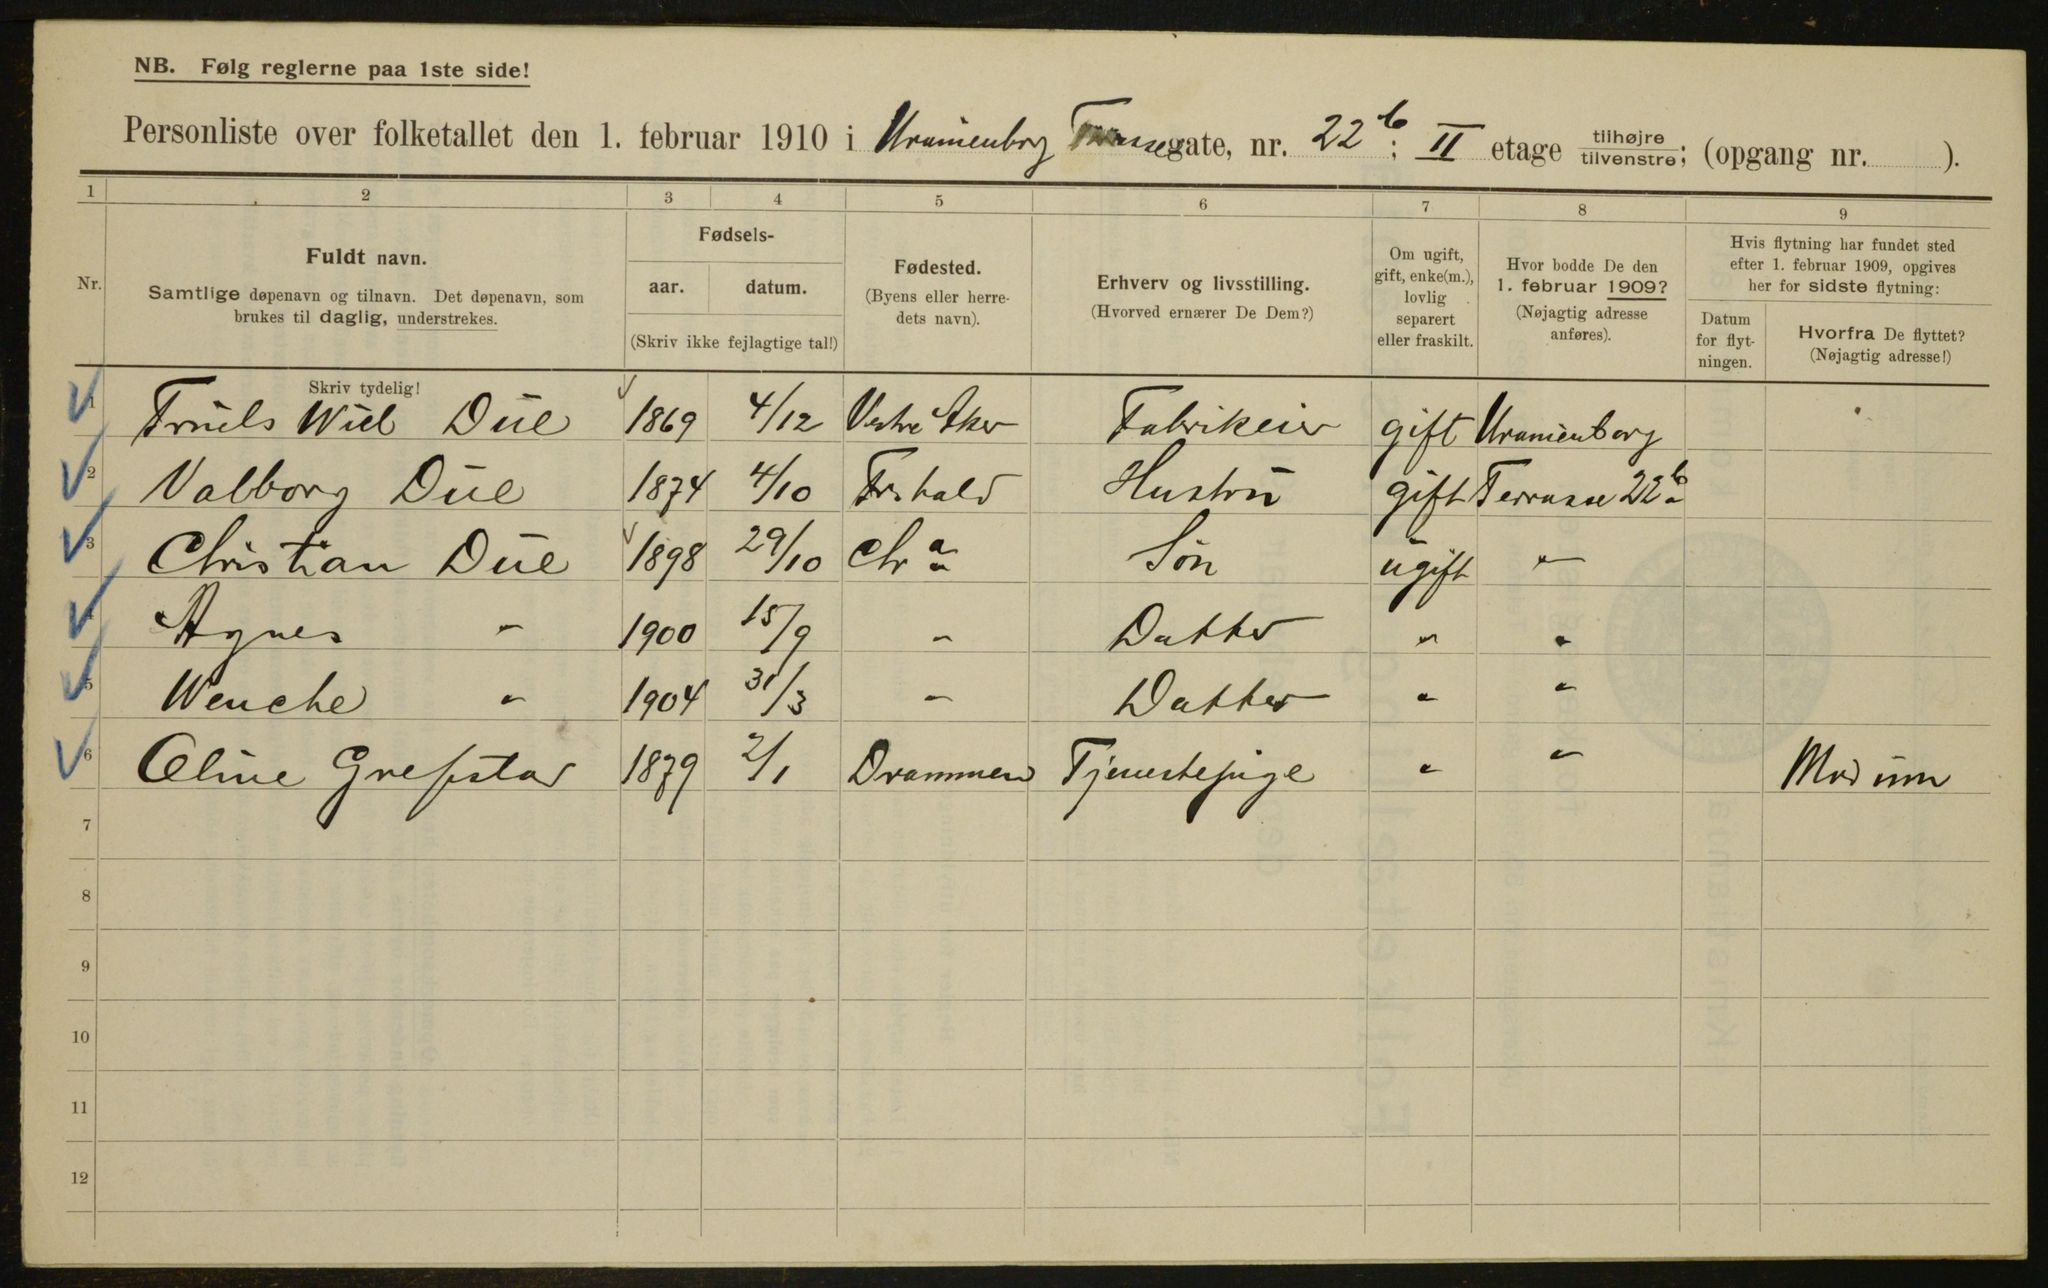 NB. Følg reglerne paa 1ste side!
Personliste over folketallet den 1. februar 1910 i Uranienborg Terrasse gate, nr. 22b; II etage tilhøjre/tilvenstre; (opgang nr. ).
1 2 3 4 5 6 7 8 9
Nr.
Fuldt navn.
Samtlige døpenavn og tilnavn. Det døpenavn, som
brukes til daglig, understrekes.
Fødsels-
aar. datum.
(Skriv ikke fejlagtige tal!)
Fødested.
(Byens eller herre-
dets navn).
Erhverv og livsstilling.
(Hvorved ernærer De Dem?)
Om ugift,
gift, enke(m.),
lovlig
separert
eller fraskilt.
Hvor bodde De den
1. februar 1909?
(Nøjagtig adresse
anføres).
Hvis flytning har fundet sted
efter 1. februar 1909, opgives
her for sidste flytning:
Datum
for flyt-
ningen.
Hvorfra De flyttet?
(Nøjagtig adresse!)
Skriv tydelig!
1 Truels Wiel Due 1869 4/12 Vestre Aker Fabrikeier gift Uranienborg
2 Valborg Due 1874 4/10 Frhald Hustru gift Terrasse 22b
3 Christian Due 1898 29/10 Chra Søn ugift "
4 Agnes " 1900 15/9 " Datter " "
5 Wenche " 1904 31/3 " Datter " "
6 Oline Grefstad 1879 2/1 Drammen Tjenestepige " " Modum
7
8
9
10
11
12